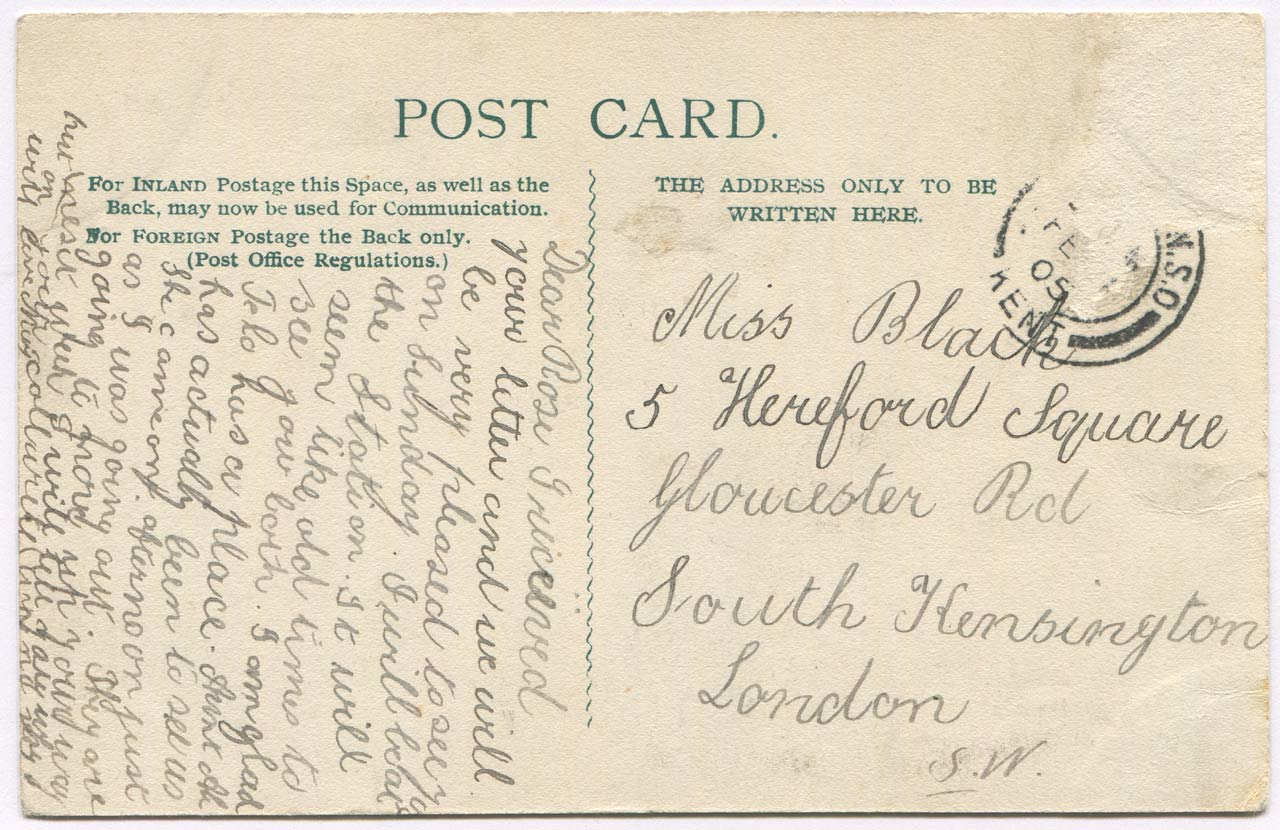 POST CARD.
For INLAND Postage this Space, as well as the
Back, may now be used for Communication.
For FOREIGN Postage the Back only.
(Post Office Regulations.)
THE ADDRESS ONLY TO BE
WRITTEN HERE.
N.S.O.
05
KENT
Miss Black
5 Hereford Square
Gloucester Rd
South Kensington
London
S.W.
Dear Rose I received
your letter and we will
be very pleased to see
on Sunday. I will be
the Station. It will
seem like old times to
see you both. I am glad
has a place. Aunt
has actually been to see us
She came on afternoon just
as I was going out. They are
going to
but will
will